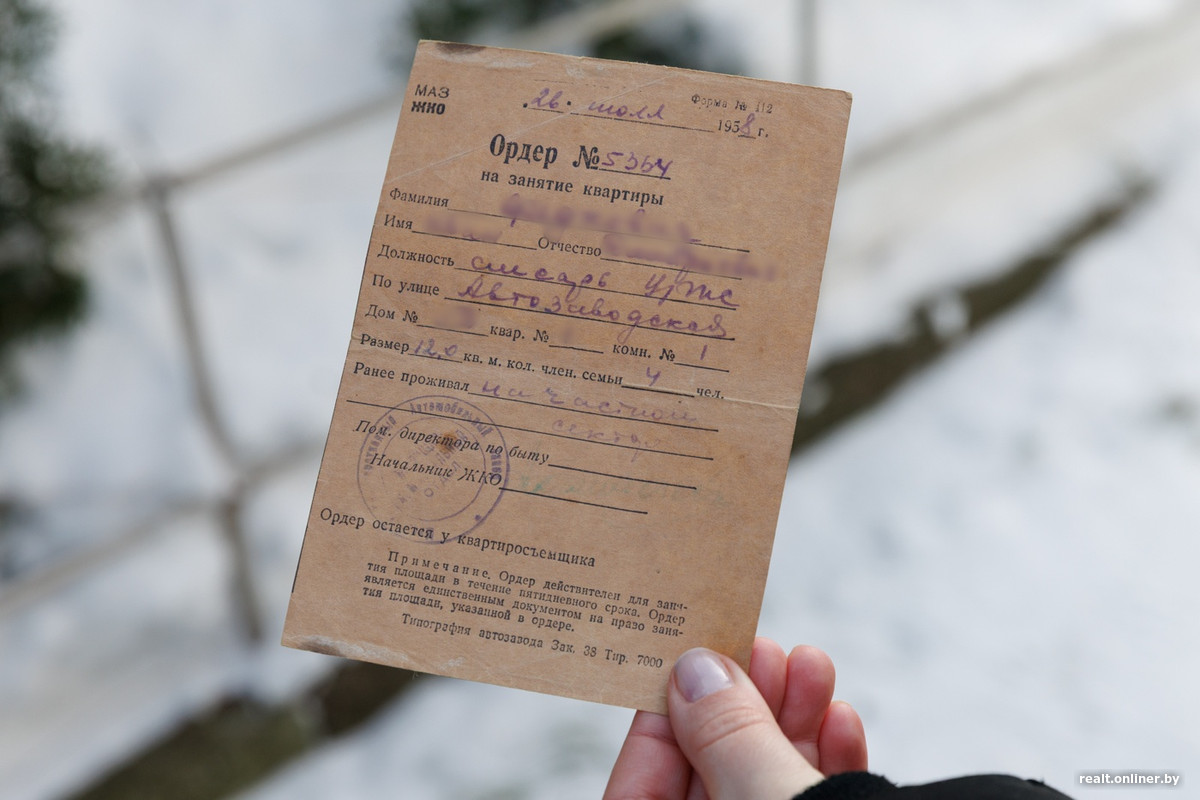 МАЗ
ЖКО
Форма № 112
26. июля 1958 г.
Ордер № 5364
на занятие квартиры
Фамилия
Имя Отчество
Должность слесарь
По улице Автозаводская
Дом № квар. № комн. № 1
Размер 12,0 кв. м. кол. член. семьи 4 чел.
Ранее проживал на частном
секторе
Пом. директора по быту
Начальник ЖКО
Ордер остается у квартиросъемщика
Примечание. Ордер действителен для заня-
тия площади в течение пятидневного срока. Ордер
является единственным документом на право заня-
тия площади, указанной в ордере.
Типография автозавода Зак. 38 Тир. 7000
realt.onliner.by